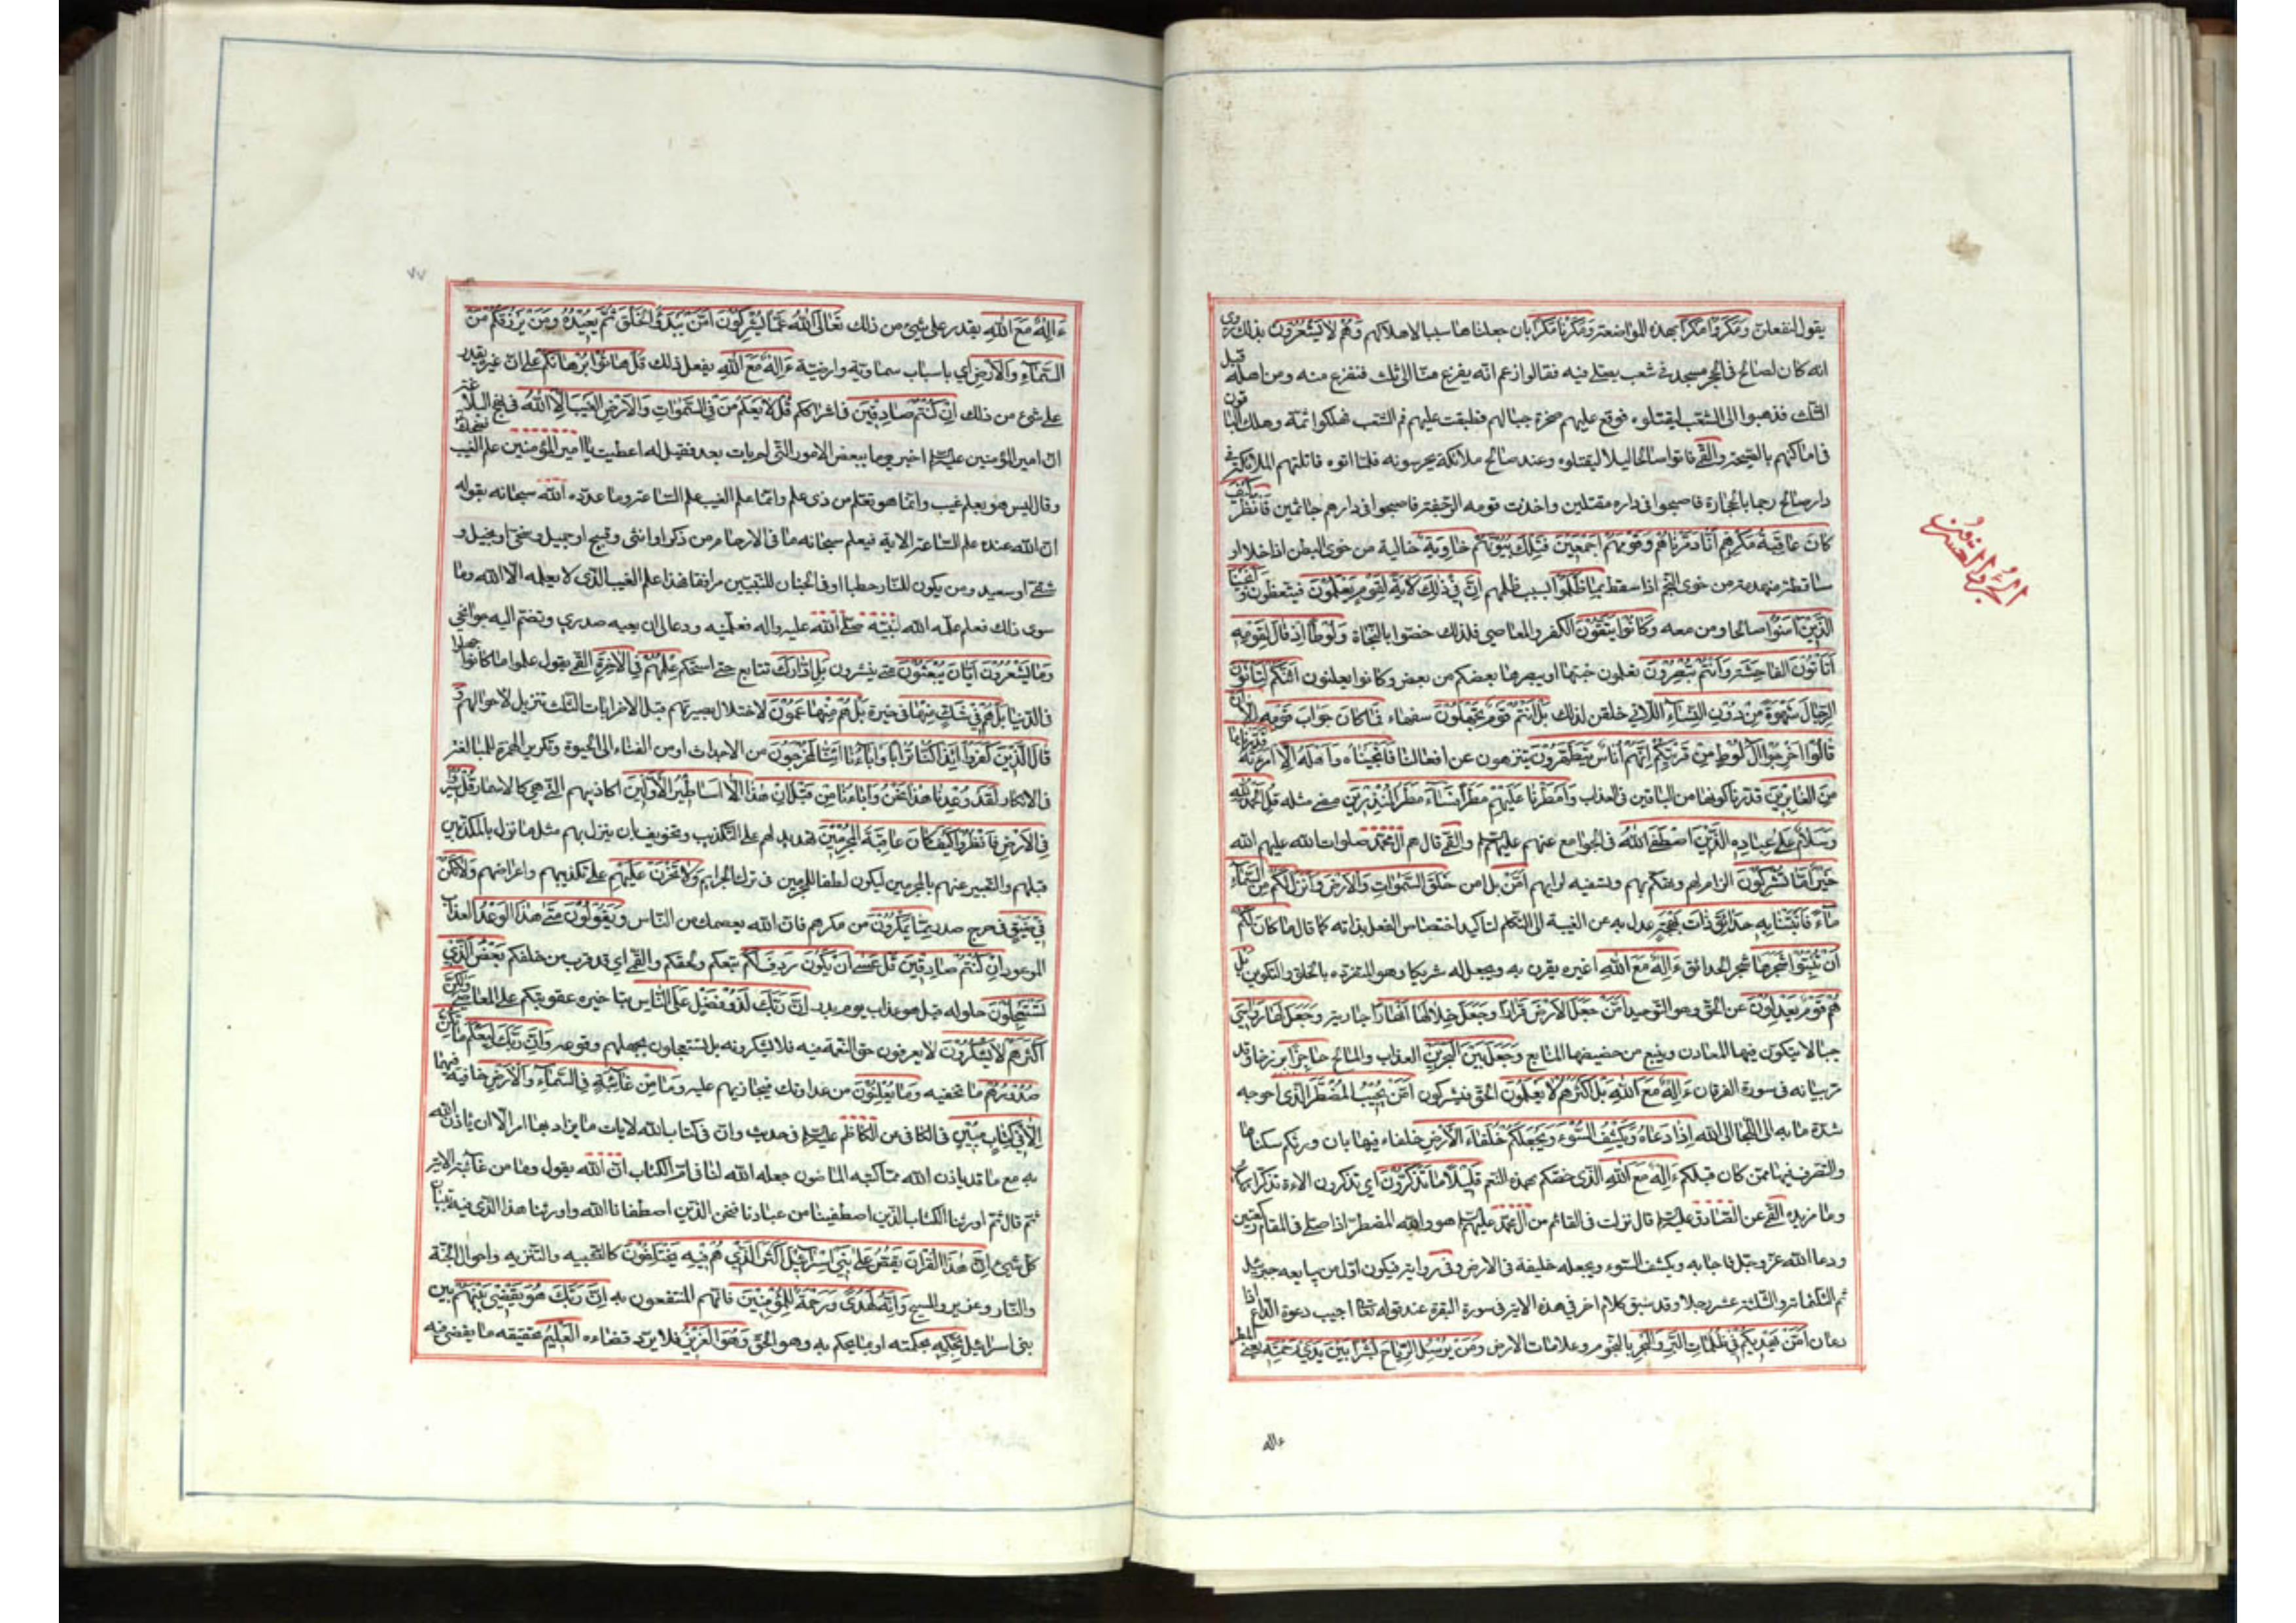 يقول لنفعلن وَمَكَرُوا مَكْراً بهذه المواضعة وَمَكَرْنا مَكْراً بان جعلناها سببا لاهلاكهم وَهُمْ لا يَشْعُرُونَ بذلك روى
انه كان لصالح فى الحجر مسجد فى شعب يصلى فيه فقالوا زعم انه يفرغ منا الى ثلث فنفرغ منه ومن اهله قبل
الثلث فذهبوا الى الشعب ليقتلوه فوقع عليهم صخرة حيالهم فطبقت عليهم فم الشعب فهلكوا ثمة وهلك الباقون
فى اماكنهم بالصيحة والقمى فاتوا صالحا ليلا ليقتلوه وعند صالح ملائكة يحرسونه فلما اتوه قاتلتهم الملائكة فى
دار صالح رجما بالحجارة فاصبحوا فى داره مقتلين واخذت قومه الرجفة فاصبحوا فى دارهم جاثمين فَانْظُرْ كَيْفَ
كانَ عاقِبَةُ مَكْرِهِمْ أَنَّا دَمَّرْناهُمْ وَقَوْمَهُمْ أَجْمَعِينَ فَتِلْكَ بُيُوتُهُمْ خاوِيَةً خالية من خوى البطن اذا خلا او
ساقطة منهدمة من خوى النجم اذا سقط بِما ظَلَمُوا بسبب ظلمهم إِنَّ فِي ذلِكَ لَآيَةً لِقَوْمٍ يَعْلَمُونَ فيتعظون وَأَنْجَيْنَا
الَّذِينَ آمَنُوا صالحا ومن معه وَكانُوا يَتَّقُونَ الكفر والمعاصي فلذلك خصوا بالنجاة وَلُوطاً إِذْ قالَ لِقَوْمِهِ
أَتَأْتُونَ الْفاحِشَةَ وَأَنْتُمْ تُبْصِرُونَ تعلمون خبثها او يبصرها بعضكم من بعض وكانوا يعلنون أَئِنَّكُمْ لَتَأْتُونَ
الرِّجالَ شَهْوَةً مِنْ دُونِ النِّساءِ اللاتي خلقن لذلك بَلْ أَنْتُمْ قَوْمٌ تَجْهَلُونَ سفهاء فَما كانَ جَوابَ قَوْمِهِ إِلَّا أَنْ
قالُوا أَخْرِجُوا آلَ لُوطٍ مِنْ قَرْيَتِكُمْ إِنَّهُمْ أُناسٌ يَتَطَهَّرُونَ يتنزهون عن افعالنا فَأَنْجَيْناهُ وَأَهْلَهُ إِلَّا امْرَأَتَهُ قَدَّرْناها
مِنَ الْغابِرِينَ قدرنا كونها من الباقين فى العذاب وَأَمْطَرْنا عَلَيْهِمْ مَطَراً فَساءَ مَطَرُ الْمُنْذَرِينَ مضى مثله قُلِ الْحَمْدُ لِلَّهِ
وَسَلامٌ عَلى عِبادِهِ الَّذِينَ اصْطَفى اللَّهُ فى الجوامع عنهم عليهم السلام والقمى قال هم ال محمد صلوات الله عليهم اللَّهُ
خَيْرٌ أَمَّا تُشْرِكُونَ الزام لهم وتهكم بهم وتسفيه لرايهم أَمَّنْ بل امن خَلَقَ السَّماواتِ وَالْأَرْضَ وَأَنْزَلَ لَكُمْ مِنَ السَّماءِ
ماءً فَأَنْبَتْنا بِهِ حَدائِقَ ذاتَ بَهْجَةٍ عدل به عن الغيبة الى التكلم لتاكيد اختصاص الفعل بذاته كما قال ما كانَ لَكُمْ
أَنْ تُنْبِتُوا شَجَرَها شجر الحدائق ءَإِلهٌ مَعَ اللَّهِ اغيره يقرن به ويجعل له شريكا وهو المتفرد بالخلق والتكوين بَلْ
هُمْ قَوْمٌ يَعْدِلُونَ عن الحق وهو التوحيد أَمَّنْ جَعَلَ الْأَرْضَ قَراراً وَجَعَلَ خِلالَها أَنْهاراً جارية وَجَعَلَ لَها رَواسِيَ
جبالا يتكون فيها المعادن وينبع من حضيضها المنابع وَجَعَلَ بَيْنَ الْبَحْرَيْنِ العذاب والمالح حاجِزاً برزخا وقد
مر بيانه فى سورة الفرقان ءَإِلهٌ مَعَ اللَّهِ بَلْ أَكْثَرُهُمْ لا يَعْلَمُونَ الحق فيشركون أَمَّنْ يُجِيبُ الْمُضْطَرَّ الذى احوجه
شدة ما به الى اللجأ الى الله إِذا دَعاهُ وَيَكْشِفُ السُّوءَ وَيَجْعَلُكُمْ خُلَفاءَ الْأَرْضِ خلفاء فيها بان ورثكم سكناها
والتصرف فيها ممن كان قبلكم ءَإِلهٌ مَعَ اللَّهِ الذى خصكم بهذه النعم قَلِيلًا ما تَذَكَّرُونَ اي تذكرون الاءه تذكرا
وما مزيده القمى عن الصادق عليه السلام قال نزلت فى القائم من ال محمد عليهم السلام هو والله المضطر اذا صلى فى المقام ركعتين
ودعا الله عز وجل فاجابه ويكشف السوء ويجعله خليفة فى الارض وفى رواية فيكون اول من يبايعه جبرئيل
ثم الثلثمائة والثلثة عشر رجلا وقد سبق كلام اخر فى هذه الاية فى سورة البقرة عند قوله تعالى اجيب دعوة الداع اذا
دعان أَمَّنْ يَهْدِيكُمْ فِي ظُلُماتِ الْبَرِّ وَالْبَحْرِ بالنجوم وعلامات الارض وَمَنْ يُرْسِلُ الرِّياحَ بُشْراً بَيْنَ يَدَيْ رَحْمَتِهِ يعنى المطر
ءاله
٧٧
ءَإِلهٌ مَعَ اللَّهِ يقدر على شىء من ذلك تَعالَى اللَّهُ عَمَّا يُشْرِكُونَ أَمَّنْ يَبْدَؤُا الْخَلْقَ ثُمَّ يُعِيدُهُ وَمَنْ يَرْزُقُكُمْ مِنَ
السَّماءِ وَالْأَرْضِ اي باسباب سماوية وارضية ءَإِلهٌ مَعَ اللَّهِ يفعل ذلك قُلْ هاتُوا بُرْهانَكُمْ على ان غيره يقدر
على شىء من ذلك إِنْ كُنْتُمْ صادِقِينَ فى اشراككم قُلْ لا يَعْلَمُ مَنْ فِي السَّماواتِ وَالْأَرْضِ الْغَيْبَ إِلَّا اللَّهُ فى نهج البلاغة
ان امير المؤمنين عليه السلام اخبر يوما ببعض الامور التى لم يات بعد فقيل له اعطيت يا امير المؤمنين علم الغيب فضحك
وقال ليس هو بعلم غيب وانما هو تعلم من ذى علم وانما علم الغيب علم الساعة وما عدده الله سبحانه بقوله
ان الله عنده علم الساعة الاية فيعلم سبحانه ما فى الارحام من ذكر او انثى وقبيح او جميل وسخى او بخيل و
شقى او سعيد ومن يكون للنار حطبا او فى الجنان للنبيين مرافقا فهذا علم الغيب الذى لا يعلمه الا الله وما
سوى ذلك فعلم علمه الله لنبيه صلى الله عليه واله فعلمنيه ودعا لى ان يعيه صدري وتضم اليه جوانحى
وَما يَشْعُرُونَ أَيَّانَ يُبْعَثُونَ متى ينشرون بَلِ ادَّارَكَ تتابع حتى استحكم عِلْمُهُمْ فِي الْآخِرَةِ القمى يقول علموا ما كانوا جهلوا
فى الدنيا بَلْ هُمْ فِي شَكٍّ مِنْها فى حيرة بَلْ هُمْ مِنْها عَمُونَ لاختلال بصيرتهم قيل الاضرابات الثلث تنزيل لاحوالهم وَ
قالَ الَّذِينَ كَفَرُوا أَإِذا كُنَّا تُراباً وَآباؤُنا أَإِنَّا لَمُخْرَجُونَ من الاجداث او من الفناء الى الحيوة وتكرير الهمزة للمبالغة
فى الانكار لَقَدْ وُعِدْنا هذا نَحْنُ وَآباؤُنا مِنْ قَبْلُ إِنْ هذا إِلَّا أَساطِيرُ الْأَوَّلِينَ اكاذيبهم التى هى كالاسمار قُلْ سِيرُوا
فِي الْأَرْضِ فَانْظُرُوا كَيْفَ كانَ عاقِبَةُ الْمُجْرِمِينَ تهديد لهم على التكذيب وتخويف بان ينزل بهم مثل ما نزل بالمكذبين
قبلهم والتعبير عنهم بالمجرمين ليكون لطفا للمؤمنين فى ترك الجرائم وَلا تَحْزَنْ عَلَيْهِمْ على تكذيبهم واعراضهم وَلا تَكُنْ
فِي ضَيْقٍ فى حرج صدر مِمَّا يَمْكُرُونَ من مكرهم فان الله يعصمك من الناس وَيَقُولُونَ مَتى هذَا الْوَعْدُ العذاب
الموعود إِنْ كُنْتُمْ صادِقِينَ قُلْ عَسى أَنْ يَكُونَ رَدِفَ لَكُمْ تبعكم ولحقكم والقمى اى قد قرب من خلفكم بَعْضُ الَّذِي
تَسْتَعْجِلُونَ حلوله قيل هو عذاب يوم بدر إِنَّ رَبَّكَ لَذُو فَضْلٍ عَلَى النَّاسِ بتاخيره عقوبتكم على المعاصى وَلكِنَّ
أَكْثَرَهُمْ لا يَشْكُرُونَ لا يعرفون حق النعمة فيه فلا يشكرونه بل يستعجلون بجهلهم وقوعه وَإِنَّ رَبَّكَ لَيَعْلَمُ ما تُكِنُّ
صُدُورُهُمْ ما تخفيه وَما يُعْلِنُونَ من عداوتك فيجازيهم عليه وَما مِنْ غائِبَةٍ فِي السَّماءِ وَالْأَرْضِ خافية فيهما
إِلَّا فِي كِتابٍ مُبِينٍ فى الكافى عن الكاظم عليه السلام فى حديث وان فى كتاب الله لايات ما يراد بها امر الا ان ياذن الله
به مع ما قد ياذن الله مما كتبه الماضون جعله الله لنا فى ام الكتاب ان الله يقول وما من غائبة الاية
ثم قال ثم اورثنا الكتاب الذين اصطفينا من عبادنا فنحن الذين اصطفانا الله واورثنا هذا الذى فيه تبيان
كل شىء إِنَّ هذَا الْقُرْآنَ يَقُصُّ عَلى بَنِي إِسْرائِيلَ أَكْثَرَ الَّذِي هُمْ فِيهِ يَخْتَلِفُونَ كالتشبيه والتنزيه واحوال الجنة
والنار وعزير والمسيح وَإِنَّهُ لَهُدىً وَرَحْمَةٌ لِلْمُؤْمِنِينَ فانهم المنتفعون به إِنَّ رَبَّكَ هُوَ يَقْضِي بَيْنَهُمْ بين
بنى اسرائيل بِحُكْمِهِ بحكمته او بما يحكم به وهو الحق وَهُوَ الْعَزِيزُ فلا يرد قضاءه الْعَلِيمُ بحقيقة ما يقضى فيه